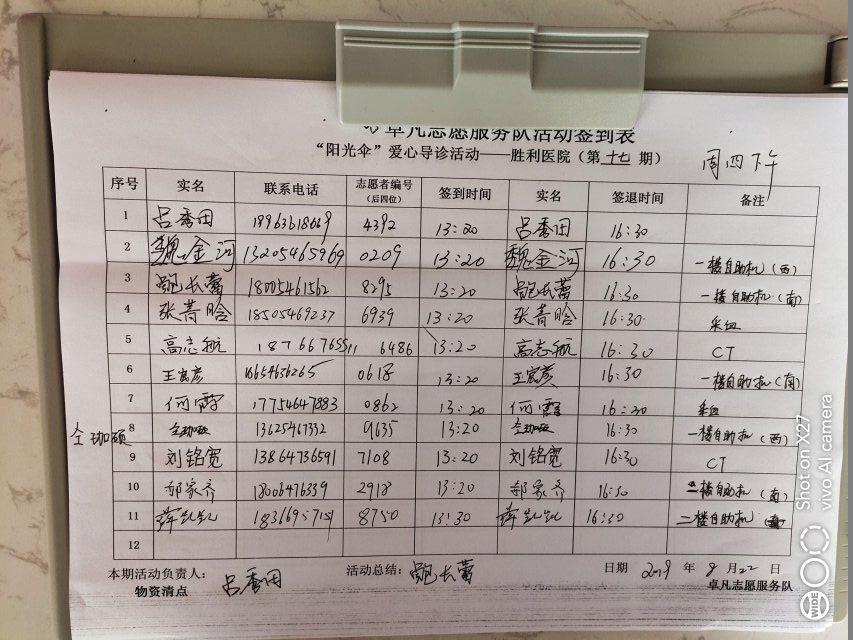 卓凡志愿服务队活动签到表
“阳光伞”爱心导诊活动——胜利医院（第 十七 期） 周四下午
序号 实名 联系电话 志愿者编号（后四位） 签到时间 实名 签退时间 备注
1 吕秀田 4392 13:20 吕秀田 16:30
2 魏金河 13205465969 0209 13:20 魏金河 16:30 一楼自助机（西）
3 鲍长蕾 18005461562 8295 13:20 鲍长蕾 16:30 一楼自助机（南）
4 张菁晗 18505469237 6939 13:20 张菁晗 16:30 采血
5 高志航 18766765511 6486 13:20 高志航 16:30 CT
6 13:20 16:30 一楼自助机（南）
7 何霞 17754647883 0862 13:20 何霞 16:20 采血
仝珈硕
8 仝珈硕 13625467332 9635 13:20 仝珈硕 16:30 一楼自助机（西）
9 刘铭宽 13864736591 7108 13:20 刘铭宽 16:30 CT
10 郝家齐 18006476339 2918 13:20 郝家齐 16:30 二楼自助机（南）
11 薛凯凯 8750 13:30 薛凯凯 16:30 二楼自助机
12
本期活动负责人： 吕秀田 活动总结： 鲍长蕾 日期 2019 年 8 月 22 日
物资清点 卓凡志愿服务队
Shot on X27
vivo AI camera
WIDE